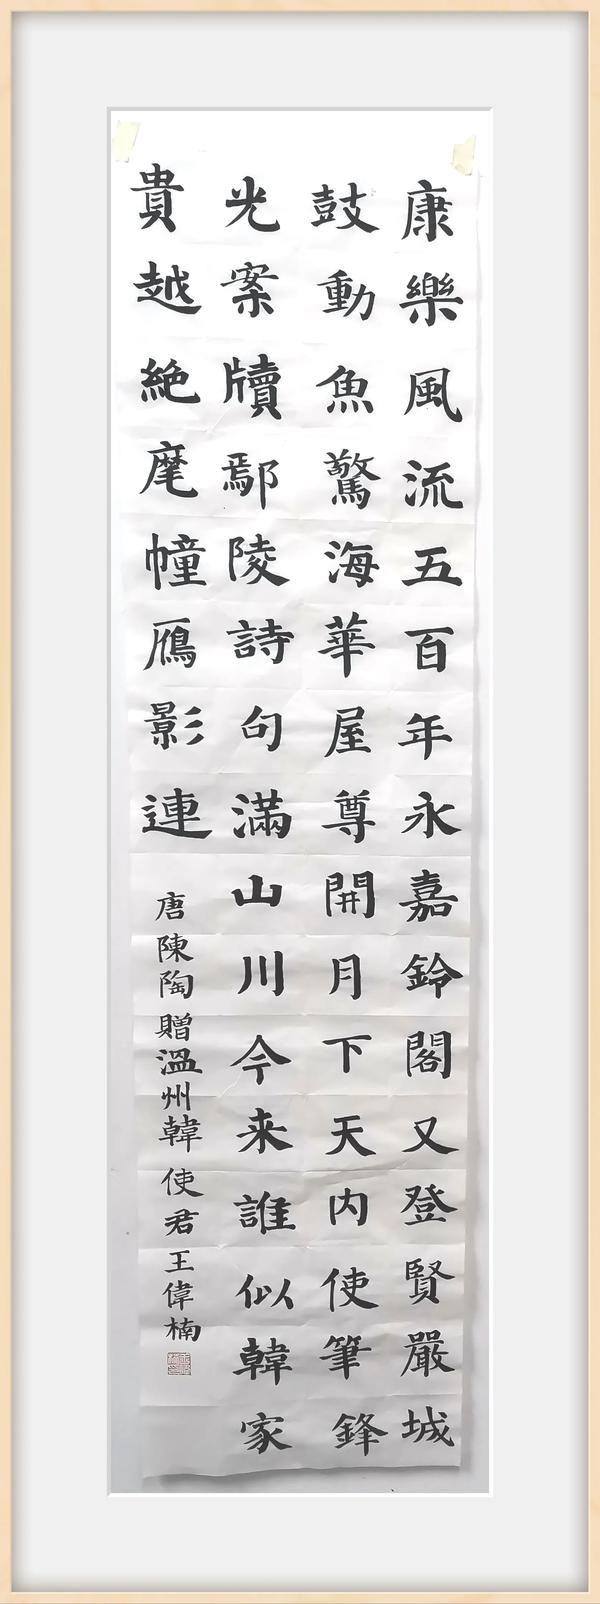 康樂風流五百年永嘉鈴閣又登賢嚴城
鼓動魚驚海華屋尊開月下天内使筆鋒
光案牘鄢陵詩句滿山川今来誰似韓家
貴越絶麾幢鴈影連
唐陳陶贈温州韓使君王偉楠